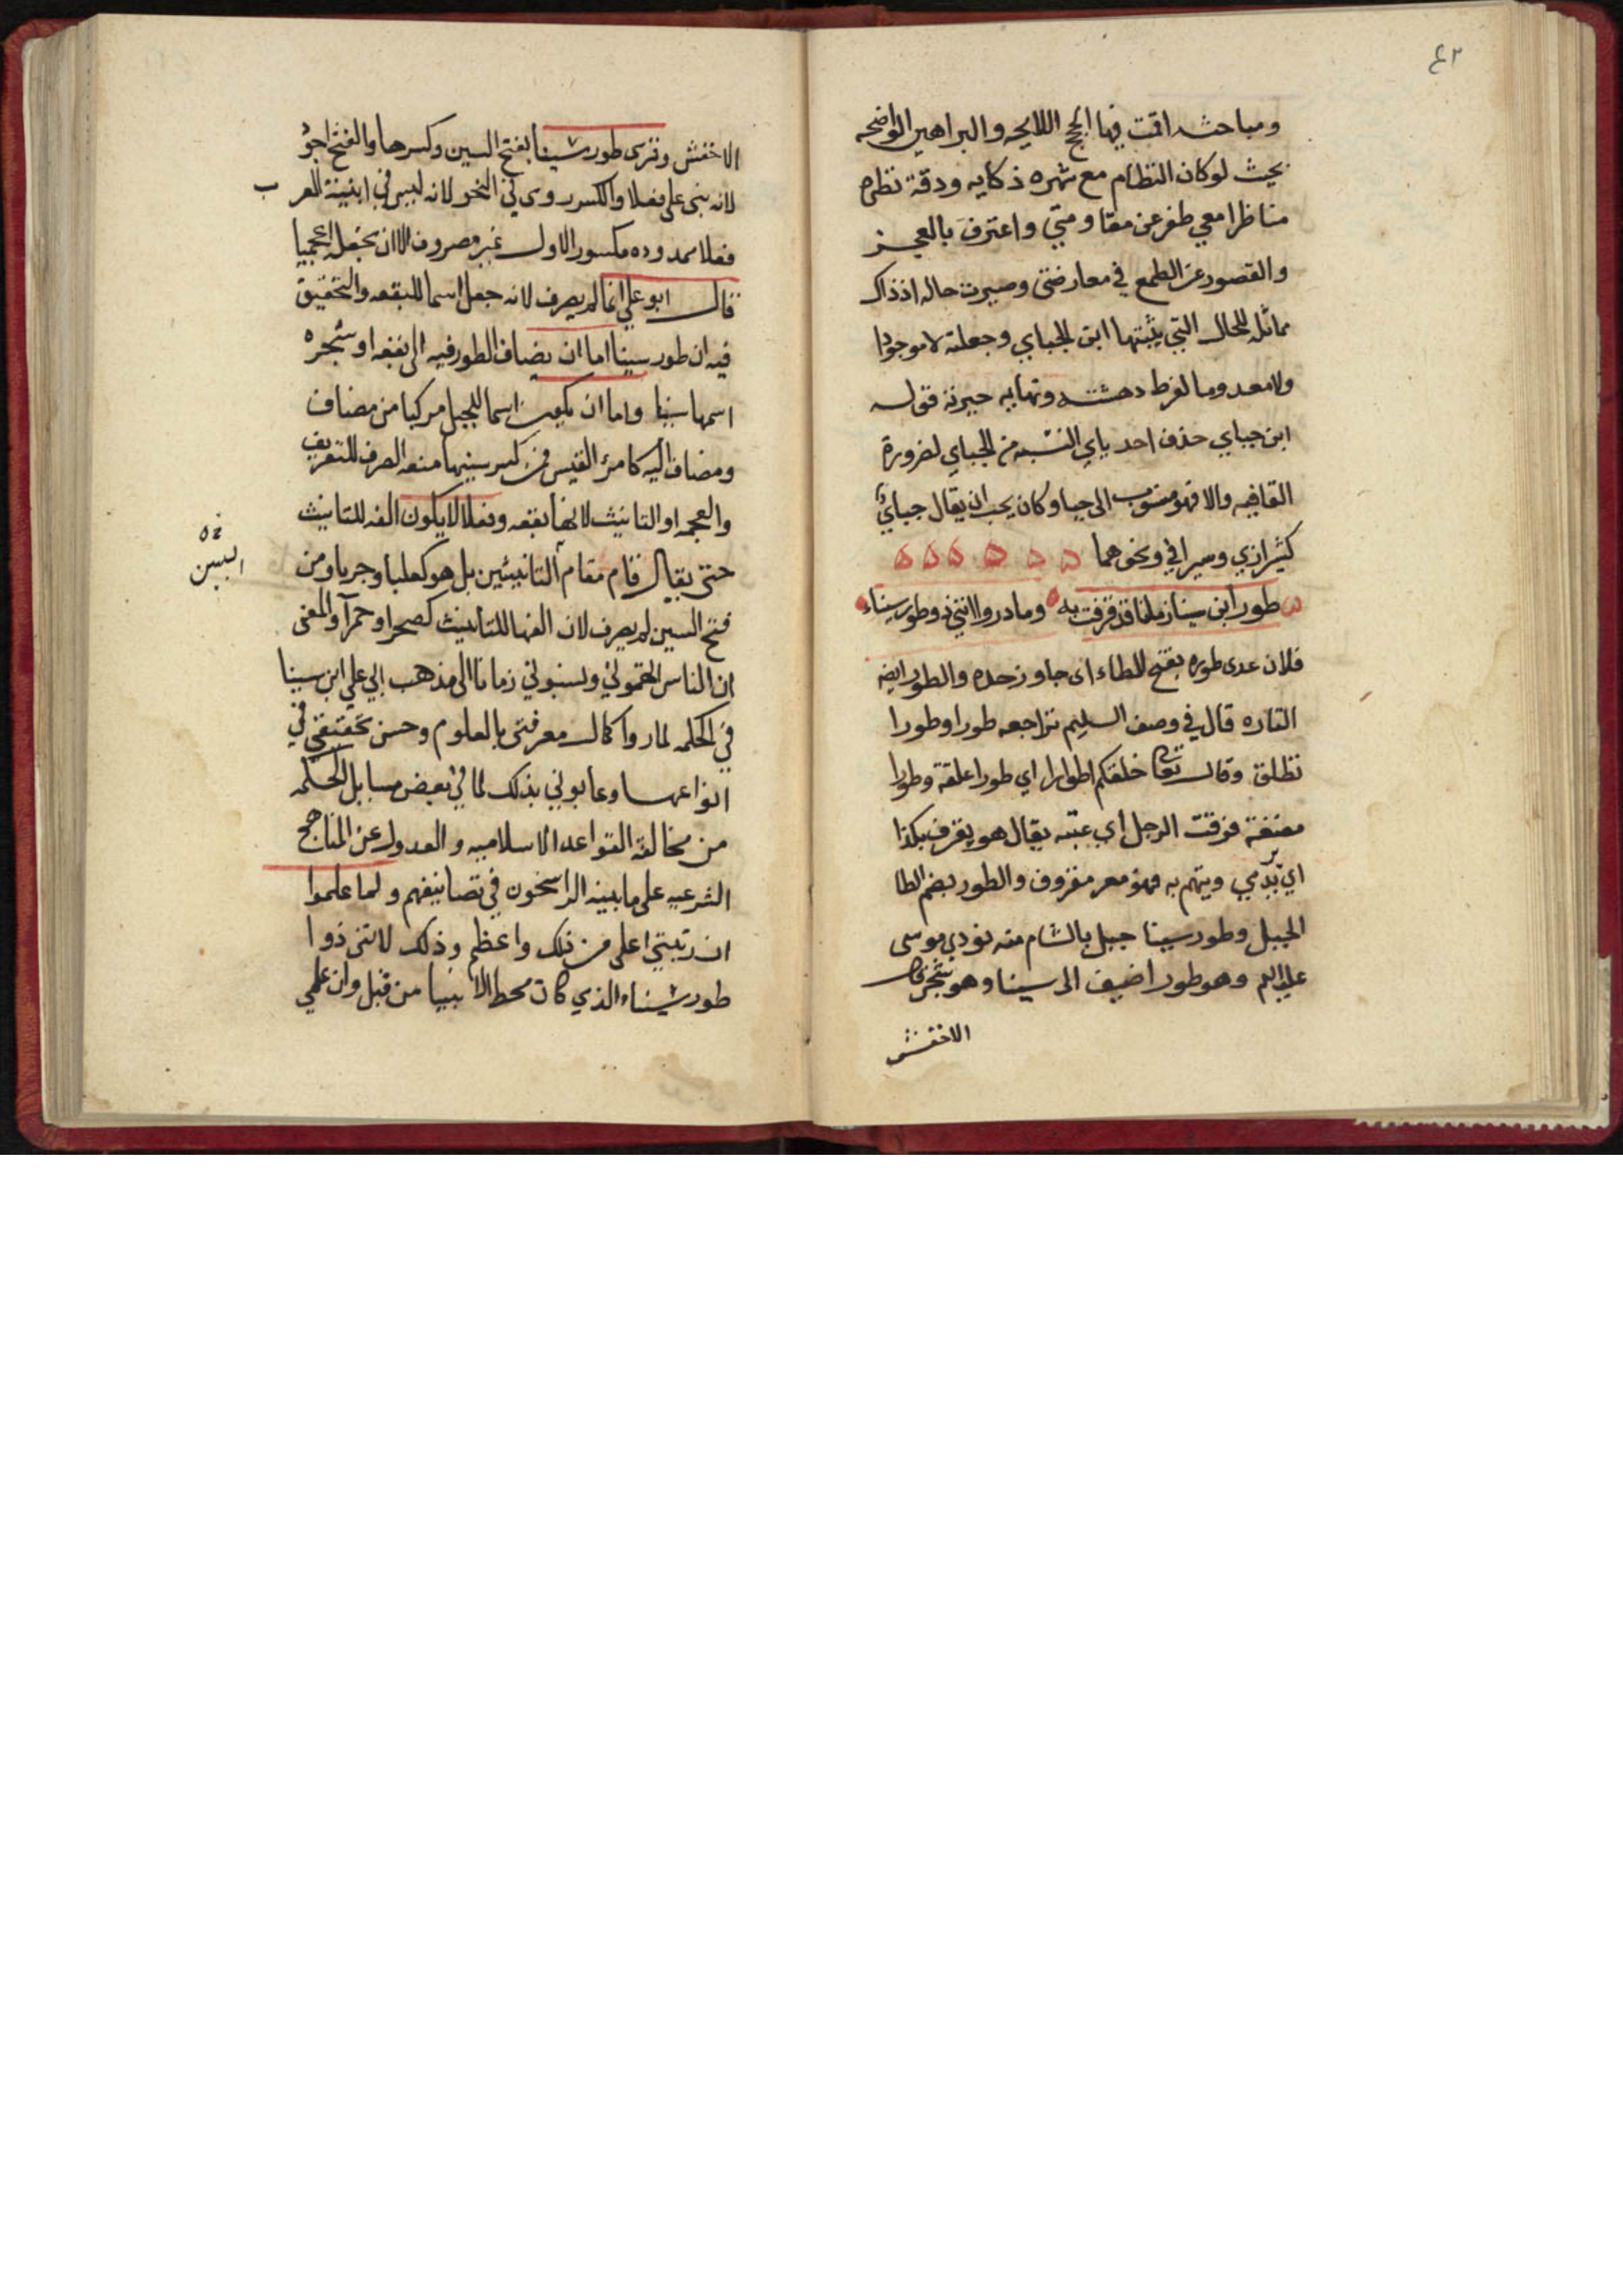 ٤٢
ومباحثه اقمت فيها الحجج اللايحه والبراهين الواضحه
بحيث لوكان النظام مع شهره ذكايه ودقة نظره
مناظرا معي طفر عن مقاومتي واعترف بالعجز
والقصور عن الطمع في معارضتي وصيرت حاله اذ ذاك
مماثله للحال التي يثبتها ابن الجباي وجعلته لا موجودا
ولا معدوما لفرط دهشته ونهايه حيرته فقوله
ابن جباي حذف احد ياي النسبه من الجباي لضرورة
القافيه والا فهو منسوب الى جبا وكان يجب ان يقال جباي
كشيرازي وسيرافي ونحوهما ۵ ۵ ۵ ۵ ۵ ۵
طور ابن سينا زملنا قد قرفت به وما دروا انني ذو طور سيناء
فلان عدى طوره بفتح الطاء اى جاوز حده والطور ايضا
التاره قال في وصف السليم تراجعه طورا وطورا
تطلق وقال تعالى خلقكم اطوارا اي طورا علقة وطورا
مضغة قرفت الرجل اي عبته يقال هو يقرف بكذا
اي يرمي ويتهم به فهو مقروف والطور بضم الطا
الجبل وطور سينا جبل بالشام منه نودي موسى
عليه السلم وهو طور اضيف الى سينا وهو شجر قال
الاخفش
الاخفش وقرى طور سينا بفتح السين وكسرها والفتح اجود
لانه بنى على فعلا والكسر ردى في النحو لانه ليس في ابنية العرب
فعلا ممدوده مكسور الاول غير مصروف الا ان تجعله اعجميا
قال ابو علي انما لم يصرف لانه جعل اسما للبقعه والتحقيق
فيه ان طور سينا اما ان يضاف الطور فيه الى بقعه او شجره
اسمها سينا واما ان يكون اسما للجبل مركبا من مضاف
ومضاف اليه كامرئ القيس فمن كسر سينها منعه الصرف للتعريف
والعجمه او التانيث لانها بقعه وفعلا لا يكون الفه للتانيث
حتى يقال قام مقام التانيثين بل هو كعلبا وجربا ومن
فتح السين لم يصرف لان الفها للتانيث كصحرا وحمرا والمعنى
ان الناس اتهموني ونسبوني زمانا الى مذهب ابي علي ابن سينا
في الحكمه لما روا كمال معرفتي بالعلوم وحسن تحقيقي في
انواعها وعابوني بذلك لما في بعض مسايل الحكمه
من مخالفة القواعد الاسلاميه والعدول عن المناهج
الشرعيه على ما بينه الراسخون في تصانيفهم ولما علموا
ان رتبتي اعلى من ذلك واعظم وذلك لانني ذوا
طور سيناء الذي كان محط الانبيا من قبل وان علمي
السين